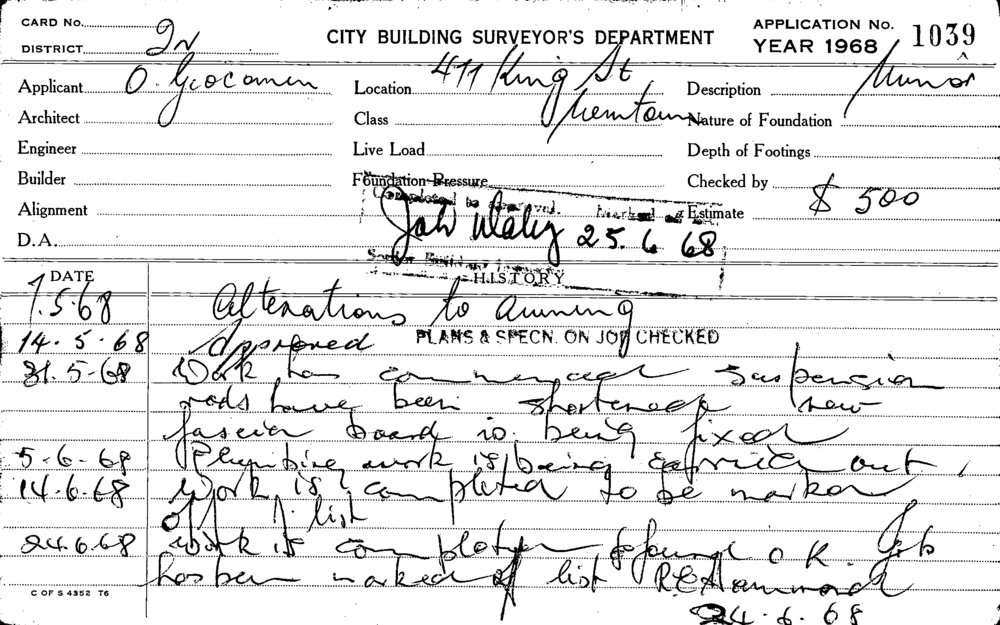 CARD No.
DISTRICT
CITY BUILDING SURVEYOR'S DEPARTMENT
APPLICATION No. 1039
YEAR 1968
Applicant O.
Location 477 King St
Newtown
Description Minor
Architect
Class
Nature of Foundation
Engineer
Live Load
Depth of Footings
Builder
Foundation Pressure
Checked by
Alignment
Estimate $ 500
D.A.
Completed to approval. Marked off List.
25.6.68
Senior Building Inspector
HISTORY
DATE
7.5.68 Alterations to awning
14.5.68 Approved PLANS & SPECN. ON JOB CHECKED
31.5.68 Work has commenced suspension
rods have been shortened new
fascia board is being fixed
5-6-68 Plumbing work is being carried out.
14.6.68 Work is completed to be marked
off list
24.6.68 Work is completed & found O.K. Job
has been marked off list
24.6.68
C OF S 4352 T6